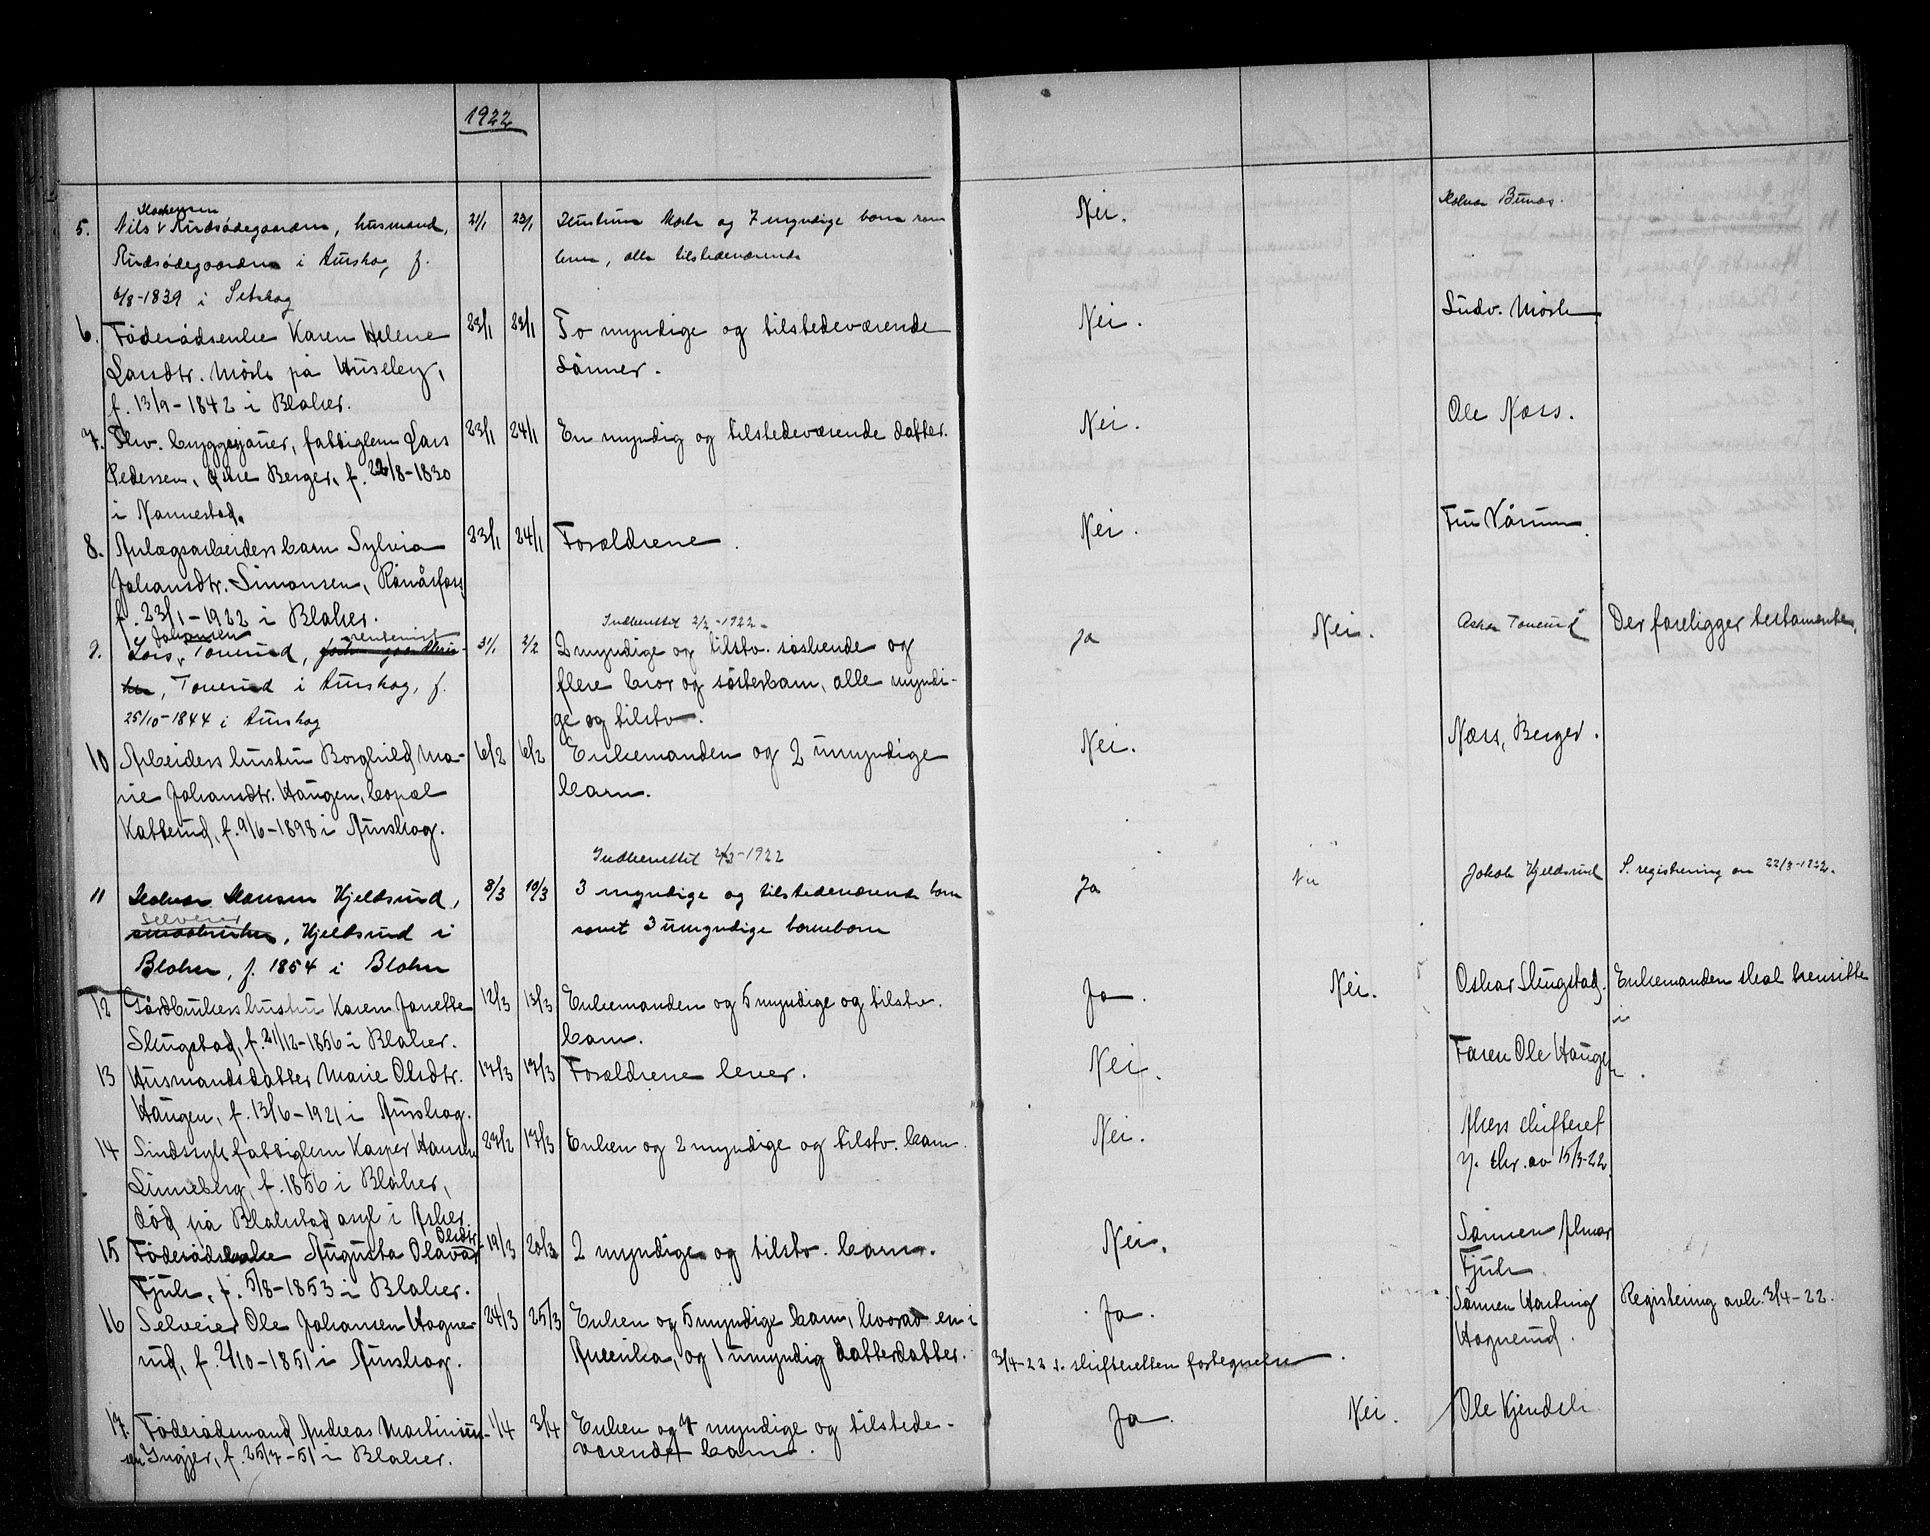 1922
5. Nils Rudsødegaarden, husmand, 21/1 23/1 Hustrun Marte og 7 myndige barn som Nei.
Rudsødegaarden i Aurskog f. lever, alle tilstedeværende
6/8-1839 i Setskog
6. Føderådsenke Karen Helene 23/1 23/1 To myndige og tilstedeværende Nei. Ludv. Mørk
Larsdtr. Mørk på Huseby, Sønner.
f. 13/9-1842 i Blaker.
7. Fhv. byggesjauer, fattiglem Lars 23/1 24/1 En myndig og tilstedeværende datter. Nei. Ole Næss.
Pedersen, Øvre Berger, f. 22/8-1830
i Nannestad.
8. Anlægsarbeiders barn Sylvia 23/1 24/1 Forældrene. Nei. Fru Vårum.
Johansdtr. Simonsen, Rånåsfoss
f. 23/1-1922 i Blaker.
Indberettet 2/2-1922.
Johansen rentenist
9. Lars Toverud, 31/1 2/2 2 myndige og tilstv. søskende og Ja Nei. Toverud Der foreligger testamente.
Toverud i Aurskog, f. flere bror og søsterbarn, alle myndi-
25/10-1844 i Aurskog ge og tilstv.
10 Arbeiders hustru Borghild Ma- 6/2 6/2 Enkemanden og 2 umyndige Nei. Næss, Berger.
rie Johansdtr. Haugen, bopæl barn.
Katterud, f. 9/6-1898 i Aurskog.
Indberettet 2/3-1922
11 Halvor Hansen Hjeldsrud, 8/3 10/3 3 myndige og tilstedeværende barn Ja Nei Jakob Hjeldsrud S. registrering av 22/3-1922.
Selveier
smaabruker, Hjeldsrud i samt 3 umyndige barnebarn
Blaker, f. 1854 i Blaker
12 Gårdbrukers hustru Karen Janette 12/3 13/3 Enkemanden og 5 myndige og tilstv. Ja. Nei. Oskar Slugstad. Enkemanden skal hensitte
Slugstad, f. 21/12-1856 i Blaker. barn. i
13 Husmandsdatter Marie Olsdtr. 17/3 17/3 Forældrene lever. Nei. Faren Ole Haugen.
Haugen, f. 13/6-1921 i Aurskog.
14 Sindssyk fattiglem Kasper Hansen 23/2 17/3 Enken og 2 myndige og tilstv. barn. Nei. Akers skifteret
Linneberg, f. 1856 i Blaker, skr. av 15/3-22
død på Blakstad asyl i Asker
Olsdtr.
15 Føderådsenke Augusta Olava 19/3 20/3 2 myndige og tilstv. barn. Nei. Sønnen Almar
Fjuk, f. 5/8-1853 i Blaker. Fjuk.
16 Selveier Ole Johansen Hogne- 24/3 25/3 Enken og 5 myndige barn, hvorav en i Ja. Sønnen Hartvig Registrering avh. 3/4-22.
rud, f. 2/10-1851 i Aurskog. Amerika, og 1 umyndig datterdatter. Hognerud.
3/4-22 s. skifterettens fortegnelse.
17. Føderådsmand Andreas Martinius- 1/4 3/4 Enken og 7 myndige og tilstede- Ja. Nei. Ole Kjendsli
sen Ingjer, f. 25/7-51 i Blaker. værende barn.